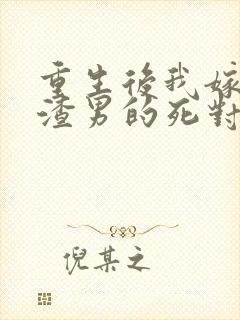 重生後我嫁
渣男的死對
倪某之